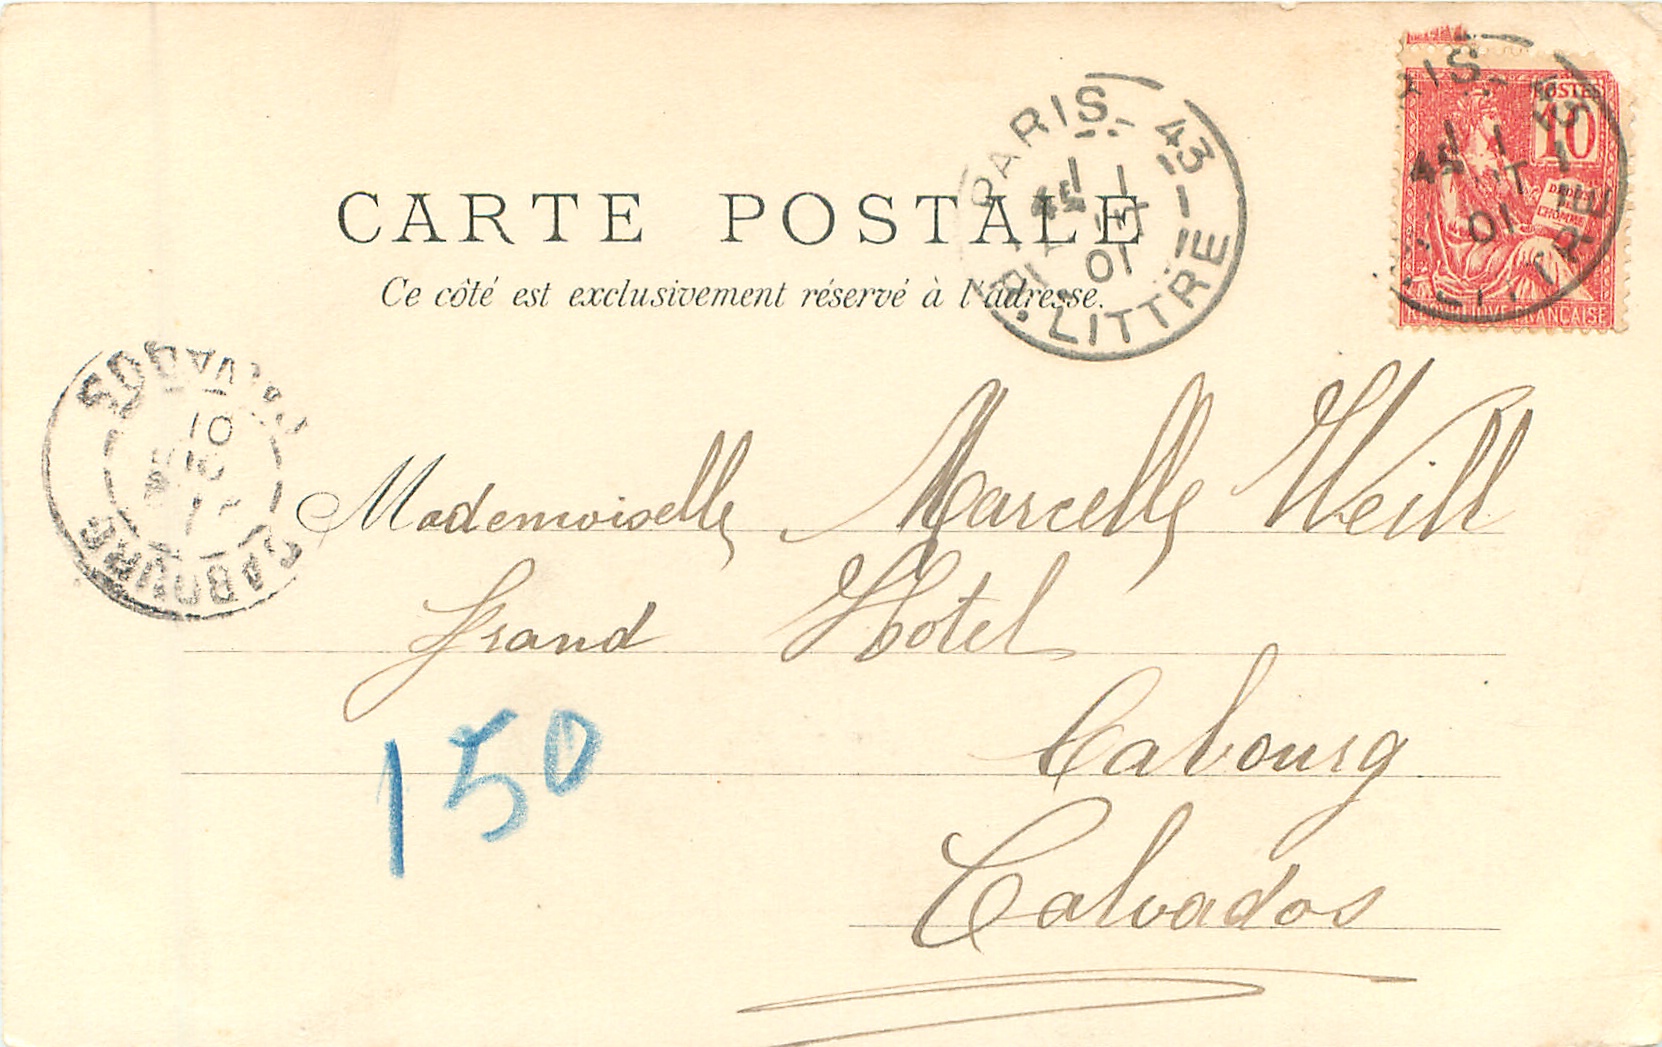 CARTE POSTALE
Ce côté est exclusivement réservé à l'adresse.
PARIS 43
1
01
R. LITTRÉ
POSTES
10
DROITS
DE
L'HOMME
REPUBLIQUE FRANÇAISE
CALVADOS
01
CABOURG
Mademoiselle Marcelle Weill
Grand Hotel
Cabourg
Calvados
150